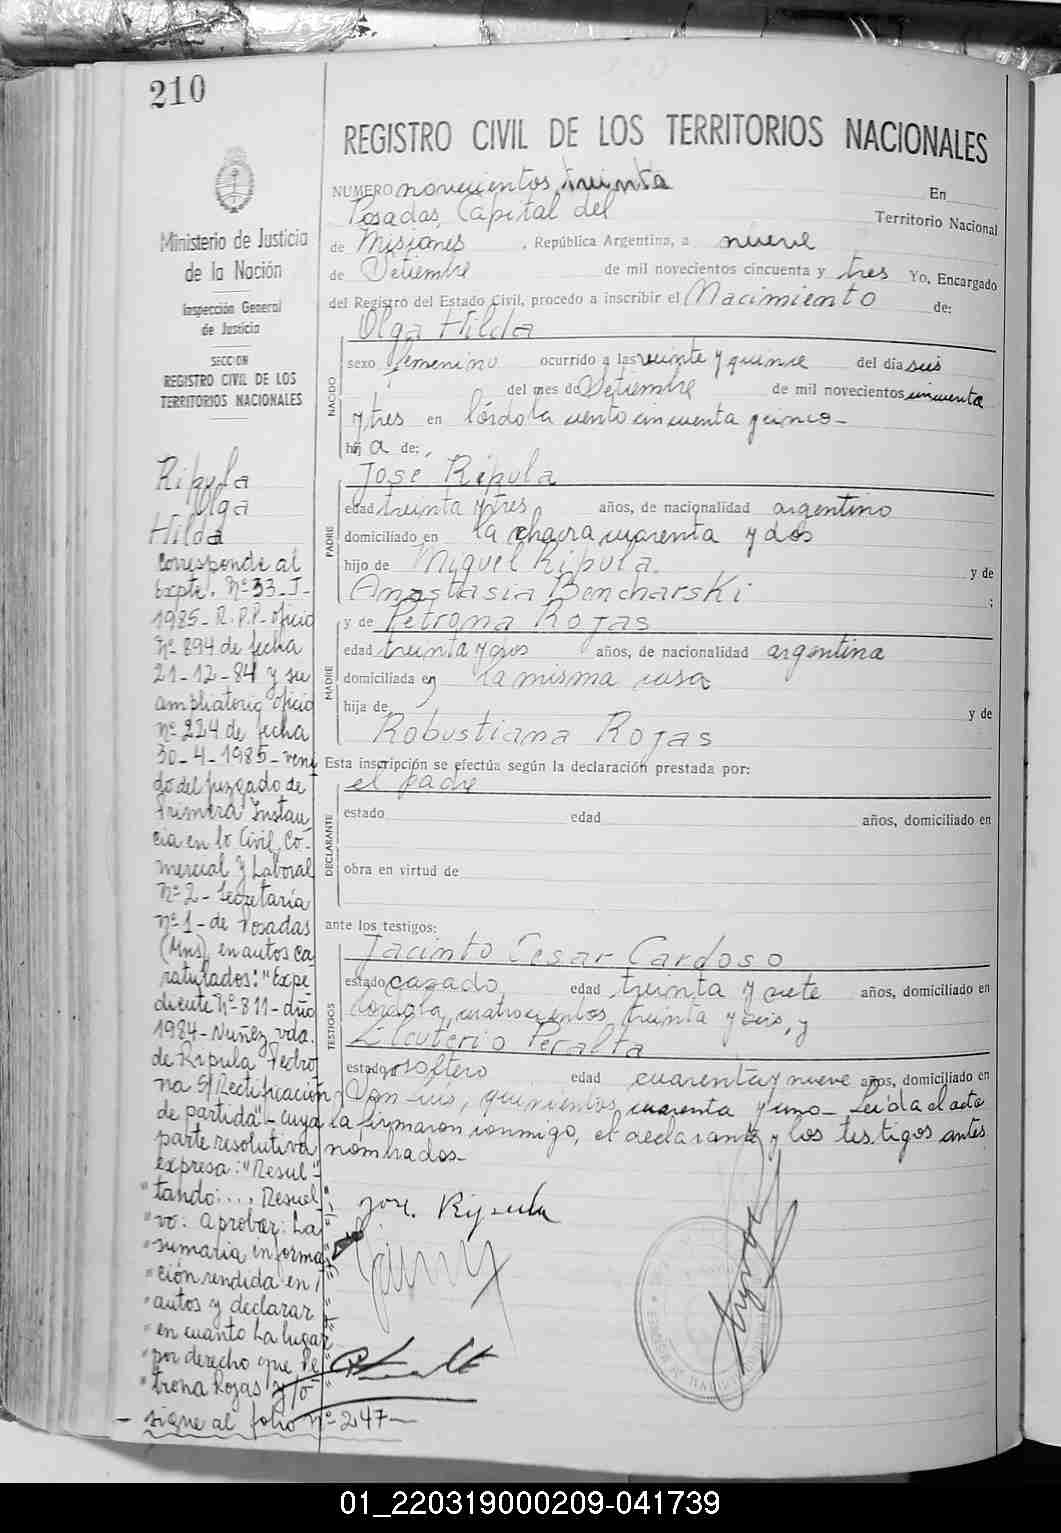 210
Ministerio de Justicia
de la Nación
Inspección General
de Justicia
SECCION
REGISTRO CIVIL DE LOS
TERRITORIOS NACIONALES
Ripula
Olga
Hilda
Corresponde al
Expte. Nº 33-J-
1985- R.P.P- oficio
Nº 894 de fecha
21-12-84 y su
ampliatorio oficio
nº 224 de fecha
30-4-1985- veni
do del juzgado de
Primera Instan
cia en lo Civil, Co-
mercial y Laboral
Nº 2- Secretaría
nº 1- de Posadas
(Mns), en autos ca
ratulados: "Expe
diente Nº 811- año
1984- Nuñez vda.
de Ripula Petro
na S/ Rectificación
de partida"- cuya
parte resolutiva
expresa: "Resul-
"tando:... Resuel
"vo: Aprobar: La
"sumaria informa
"ción rendida en
"autos y declarar
"en cuanto ha lugar
"por derecho que Pe
"trona Rojas y/o
- sigue al folio nº 247-
REGISTRO CIVIL DE LOS TERRITORIOS NACIONALES
NUMERO novecientos treinta En
Posadas, Capital del Territorio Nacional
de Misiones, República Argentina, a nueve
de Setiembre de mil novecientos cincuenta y tres Yo, Encargado
del Registro del Estado Civil, procedo a inscribir el Nacimiento de:
NACIDO
Olga Hilda
sexo femenino ocurrido a las veinte y quince del día seis
del mes de Setiembre de mil novecientos cincuenta
y tres en Córdoba ciento cincuenta y cinco-
hij a de:
PADRE
José Ripula
edad treinta y tres años, de nacionalidad argentino
domiciliado en la chacra cuarenta y dos
hijo de Miguel Ripula y de
Anastasia Bencharski ;
MADRE
y de Petrona Rojas
edad treinta y dos años, de nacionalidad argentina
domiciliada en la misma casa
hija de y de
Robustiana Rojas
Esta inscripción se efectúa según la declaración prestada por:
DECLARANTE
el padre
estado edad años, domiciliado en
obra en virtud de
ante los testigos:
TESTIGOS
Jacinto Cesar Cardoso
estado casado edad treinta y siete años, domiciliado en
Córdoba, cuatrocientos treinta y seis, y
Eleuterio Peralta
estado soltero edad cuarenta y nueve años, domiciliado en
San Luis, quinientos cuarenta y uno- Leída el acta
la firmaron conmigo, el declarante y los testigos antes
nombrados-
José Ripula
01_220319000209-041739